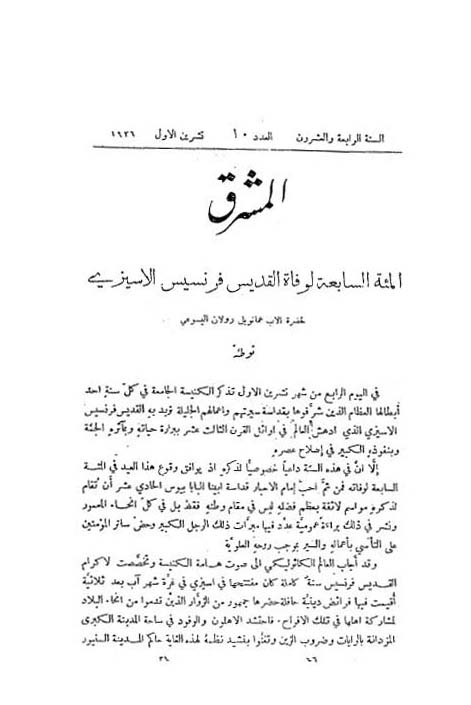 السنة الرابعة والعشرون العدد ١٠ تشرين الاول ١٩٢٦
المشرق
المئة السابعة لوفاة القديس فرنسيس الاسيزي
لحضرة الاب عمانويل رولان اليسوعي
توطئة
في اليوم الرابع من شهر تشرين الاول تذكر الكنيسة الجامعة في كلّ سنة احد
ابطالها العظام الذين شرَّفوها بقداسة سيرتهم واعمالهم الجليلة نريد به القديس فرنسيس
الاسيزي الذي ادهش العالم في اوائل القرن الثالث عشر ببرارة حياته وبمآثره الجمّة
وبنفوذه الكبير في إصلاح عصره
إلَّا انَّ في هذه السنة داعياً خصوصيًّا لذكره اذ يوافق وقوع هذا العيد في المئة
السابعة لوفاته فمن ثمَّ احبَّ إمام الاحبار قداسة ابينا البابا بيوس الحادي عشر أن تُقام
لذكره مواسم لائقة بعظم فضله ليس في مقام وطنه فقط بل في كلّ انحاء المعمور
ونشر في ذلك براءة عمومية عدَّد فيها مبرَّات ذلك الرجل الكبير وحضَّ سائر المؤمنين
على التأسّي بأعماله والسير بموجب روحه العلوية
وقد أجاب العالم الكاثوليكي الى صوت هامة الكنيسة وتخصَّصت لاكرام
القديس فرنسيس سنة كاملة كان مفتتحها في اسيزي في غرَّة شهر آب بعد ثلاثيَّة
أقيمت فيها فرائض دينيَّة حافلة حضرها جمهور من الزوَّار الذين قدموا من انحاء البلاد
لمشاركة اهلها في تلك الافراح. فاحتشد الاهلون والوفود في ساحة المدينة الكبرى
المزدانة بالرايات وضروب الزين وتغنَّوا بنشيد نظمهُ لهذه الغاية حاكم المدينة السنيور